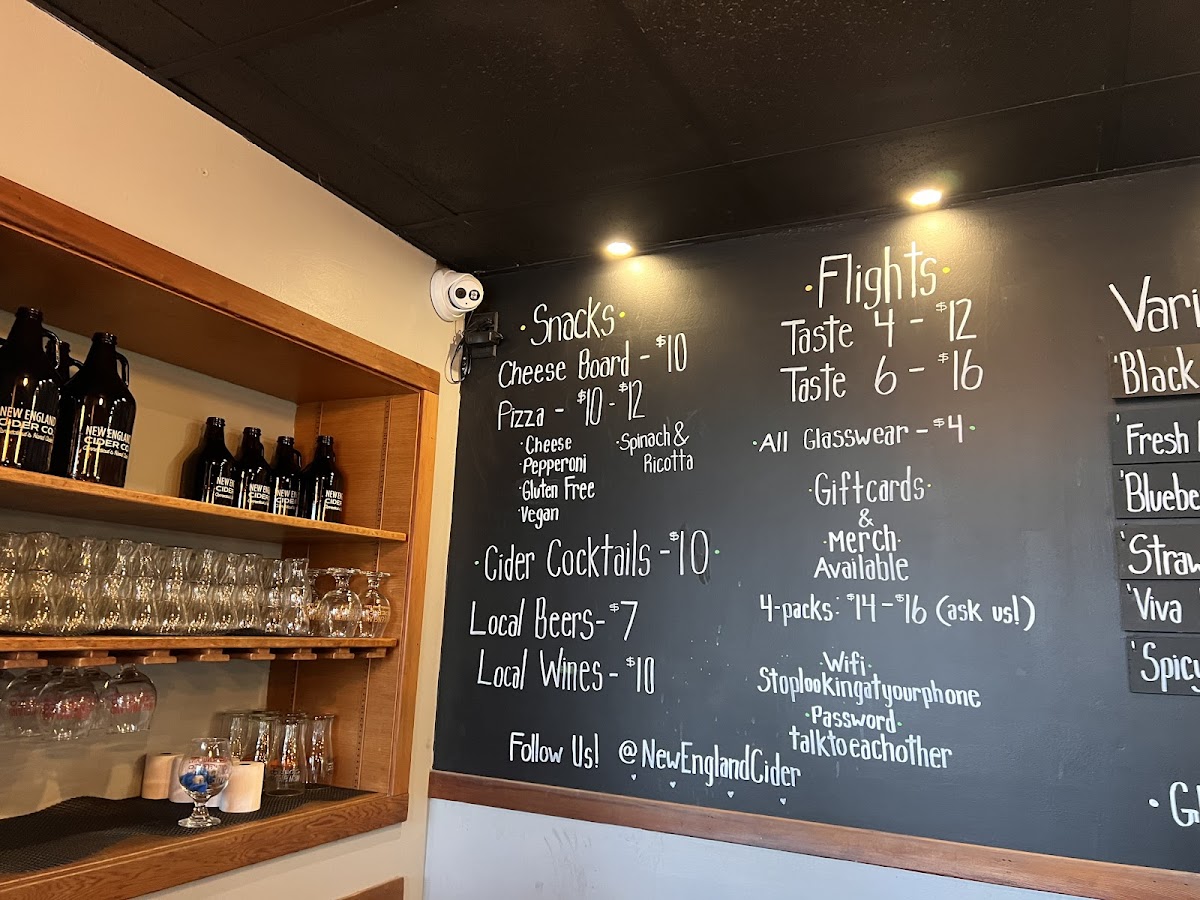 NEW ENGLAND
CIDER CO.
NEW ENGLAND
CIDER CO
NEW ENG
CIDER
NEW ENG
CIDER
NEW ENG
CIDER
NEW ENG
CIDER
·Snacks·
Cheese Board - $10
Pizza - $10 - $12
·Cheese
·Pepperoni
·Gluten Free
·Vegan
·Spinach &
Ricotta
·Cider Cocktails - $10·
Local Beers - $7
Local Wines - $10
Follow Us! @NewEnglandCider
·Flights·
Taste 4 - $12
Taste 6 - $16
·All Glasswear - $4·
·Giftcards·
&
·Merch·
Available
4-packs: $14 - $16 (ask us!)
·Wifi·
Stoplookingatyourphone
·Password·
talktoeachother
Vari
'Black
'Fresh
'Bluebe
'Straw
'Viva
'Spicy